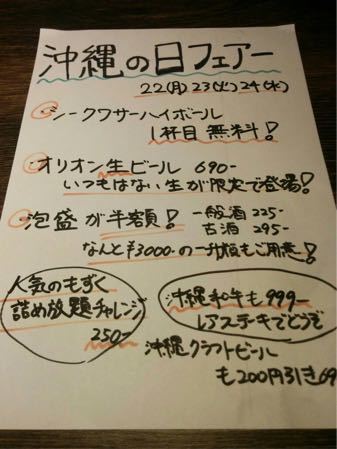 沖縄の日フェアー
22(月)23(火)24(水)
シークワサーハイボール
1杯目無料!
オリオン生ビール 690-
いつもはない生が限定で登場!
泡盛が半額! 一般酒225-
古酒 295-
なんと¥3000-の一升瓶もご用意!
人気のもずく
詰め放題チャレンジ
250-
沖縄和牛も999-
レアステーキでどうぞ
沖縄クラフトビール
も200円引き69